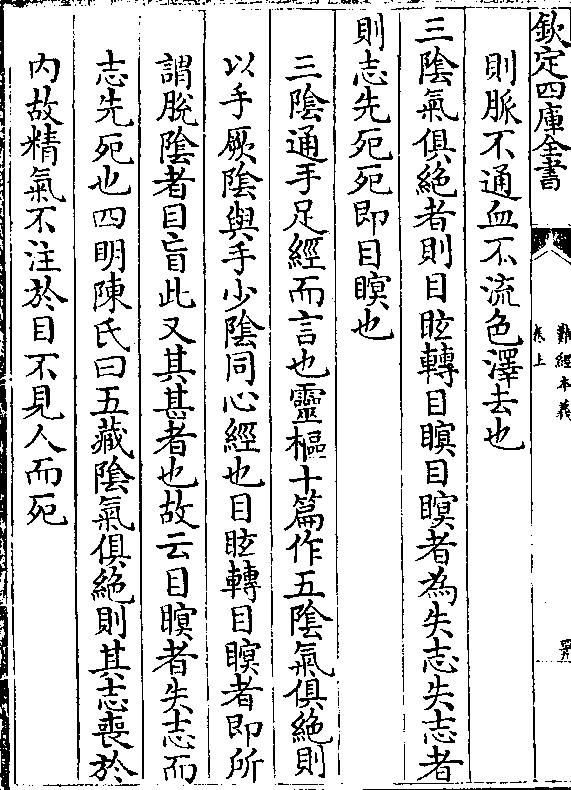 欽定四庫全書
難經本義
卷上
則脈不通血不流色澤去也
三陰氣俱絶者則目眩轉目瞑目瞑者為失志失志者
則志先死死即目瞑也
三陰通手足經而言也靈樞十篇作五陰氣俱絶則
以手厥陰與手少陰同心經也目眩轉目瞑者即所
謂脫陰者目盲此又其甚者也故云目瞑者失志而
志先死也四明陳氏曰五藏陰氣俱絶則其志喪於
內故精氣不注於目不見人而死